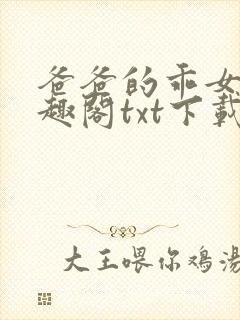 爸爸的乖女
趣阁txt下载
大王喂你鸡汤